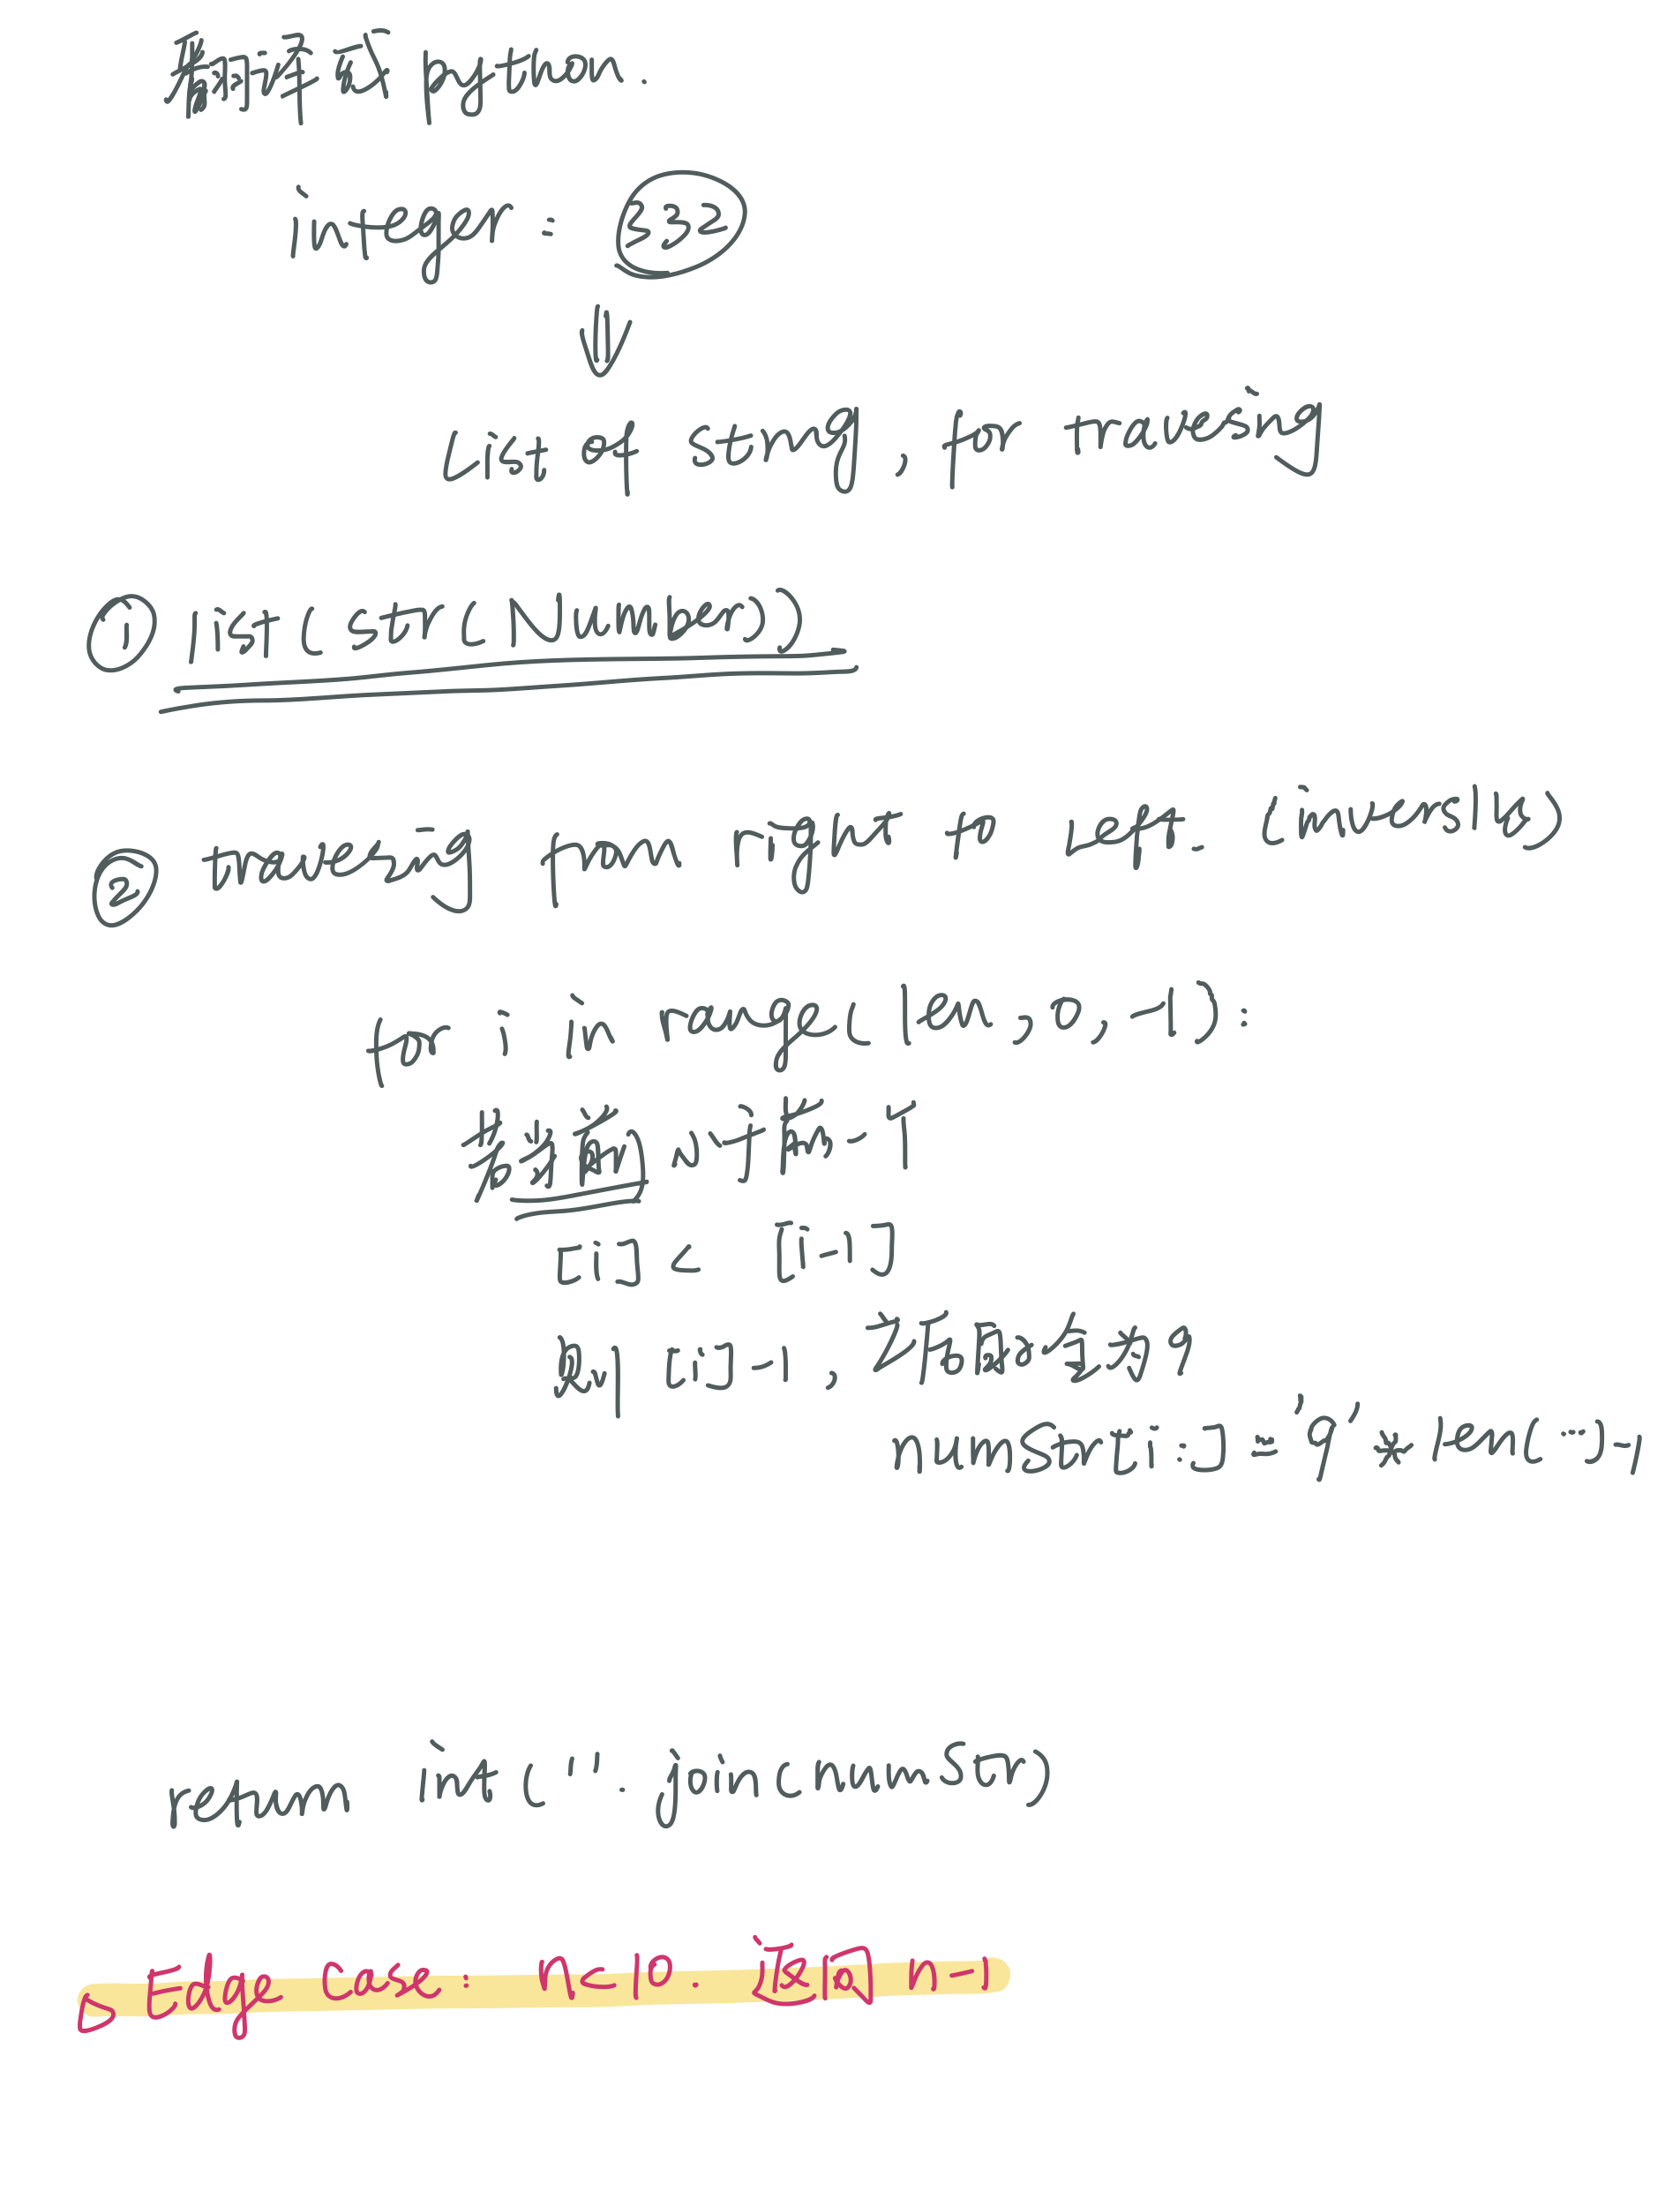 翻译成 python.
integer: 332
List of string, for traversing
① list(str(Number))
② traversing from right to left. (inverslly)
for i in range(len, 0, -1):
若当前小于前一个
[i] < [i-1]
则 [i]-1, 并后面全为9
numStr[i:] = '9' * len(...)-1
return int(''.join(numStr)
▷ Edge Case: n<10. 返回 n-1